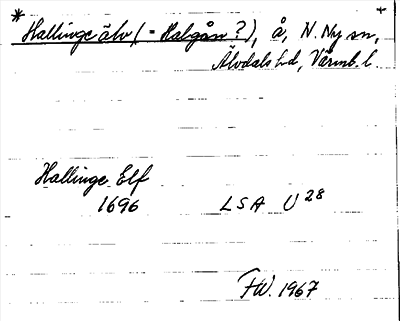 * Hallinge älv (= Halgån?), å, N. Ny sn, +
Älvdals hd, Värml. l.
Hallinge Elf
1696 LSA U 28
F.W. 1967